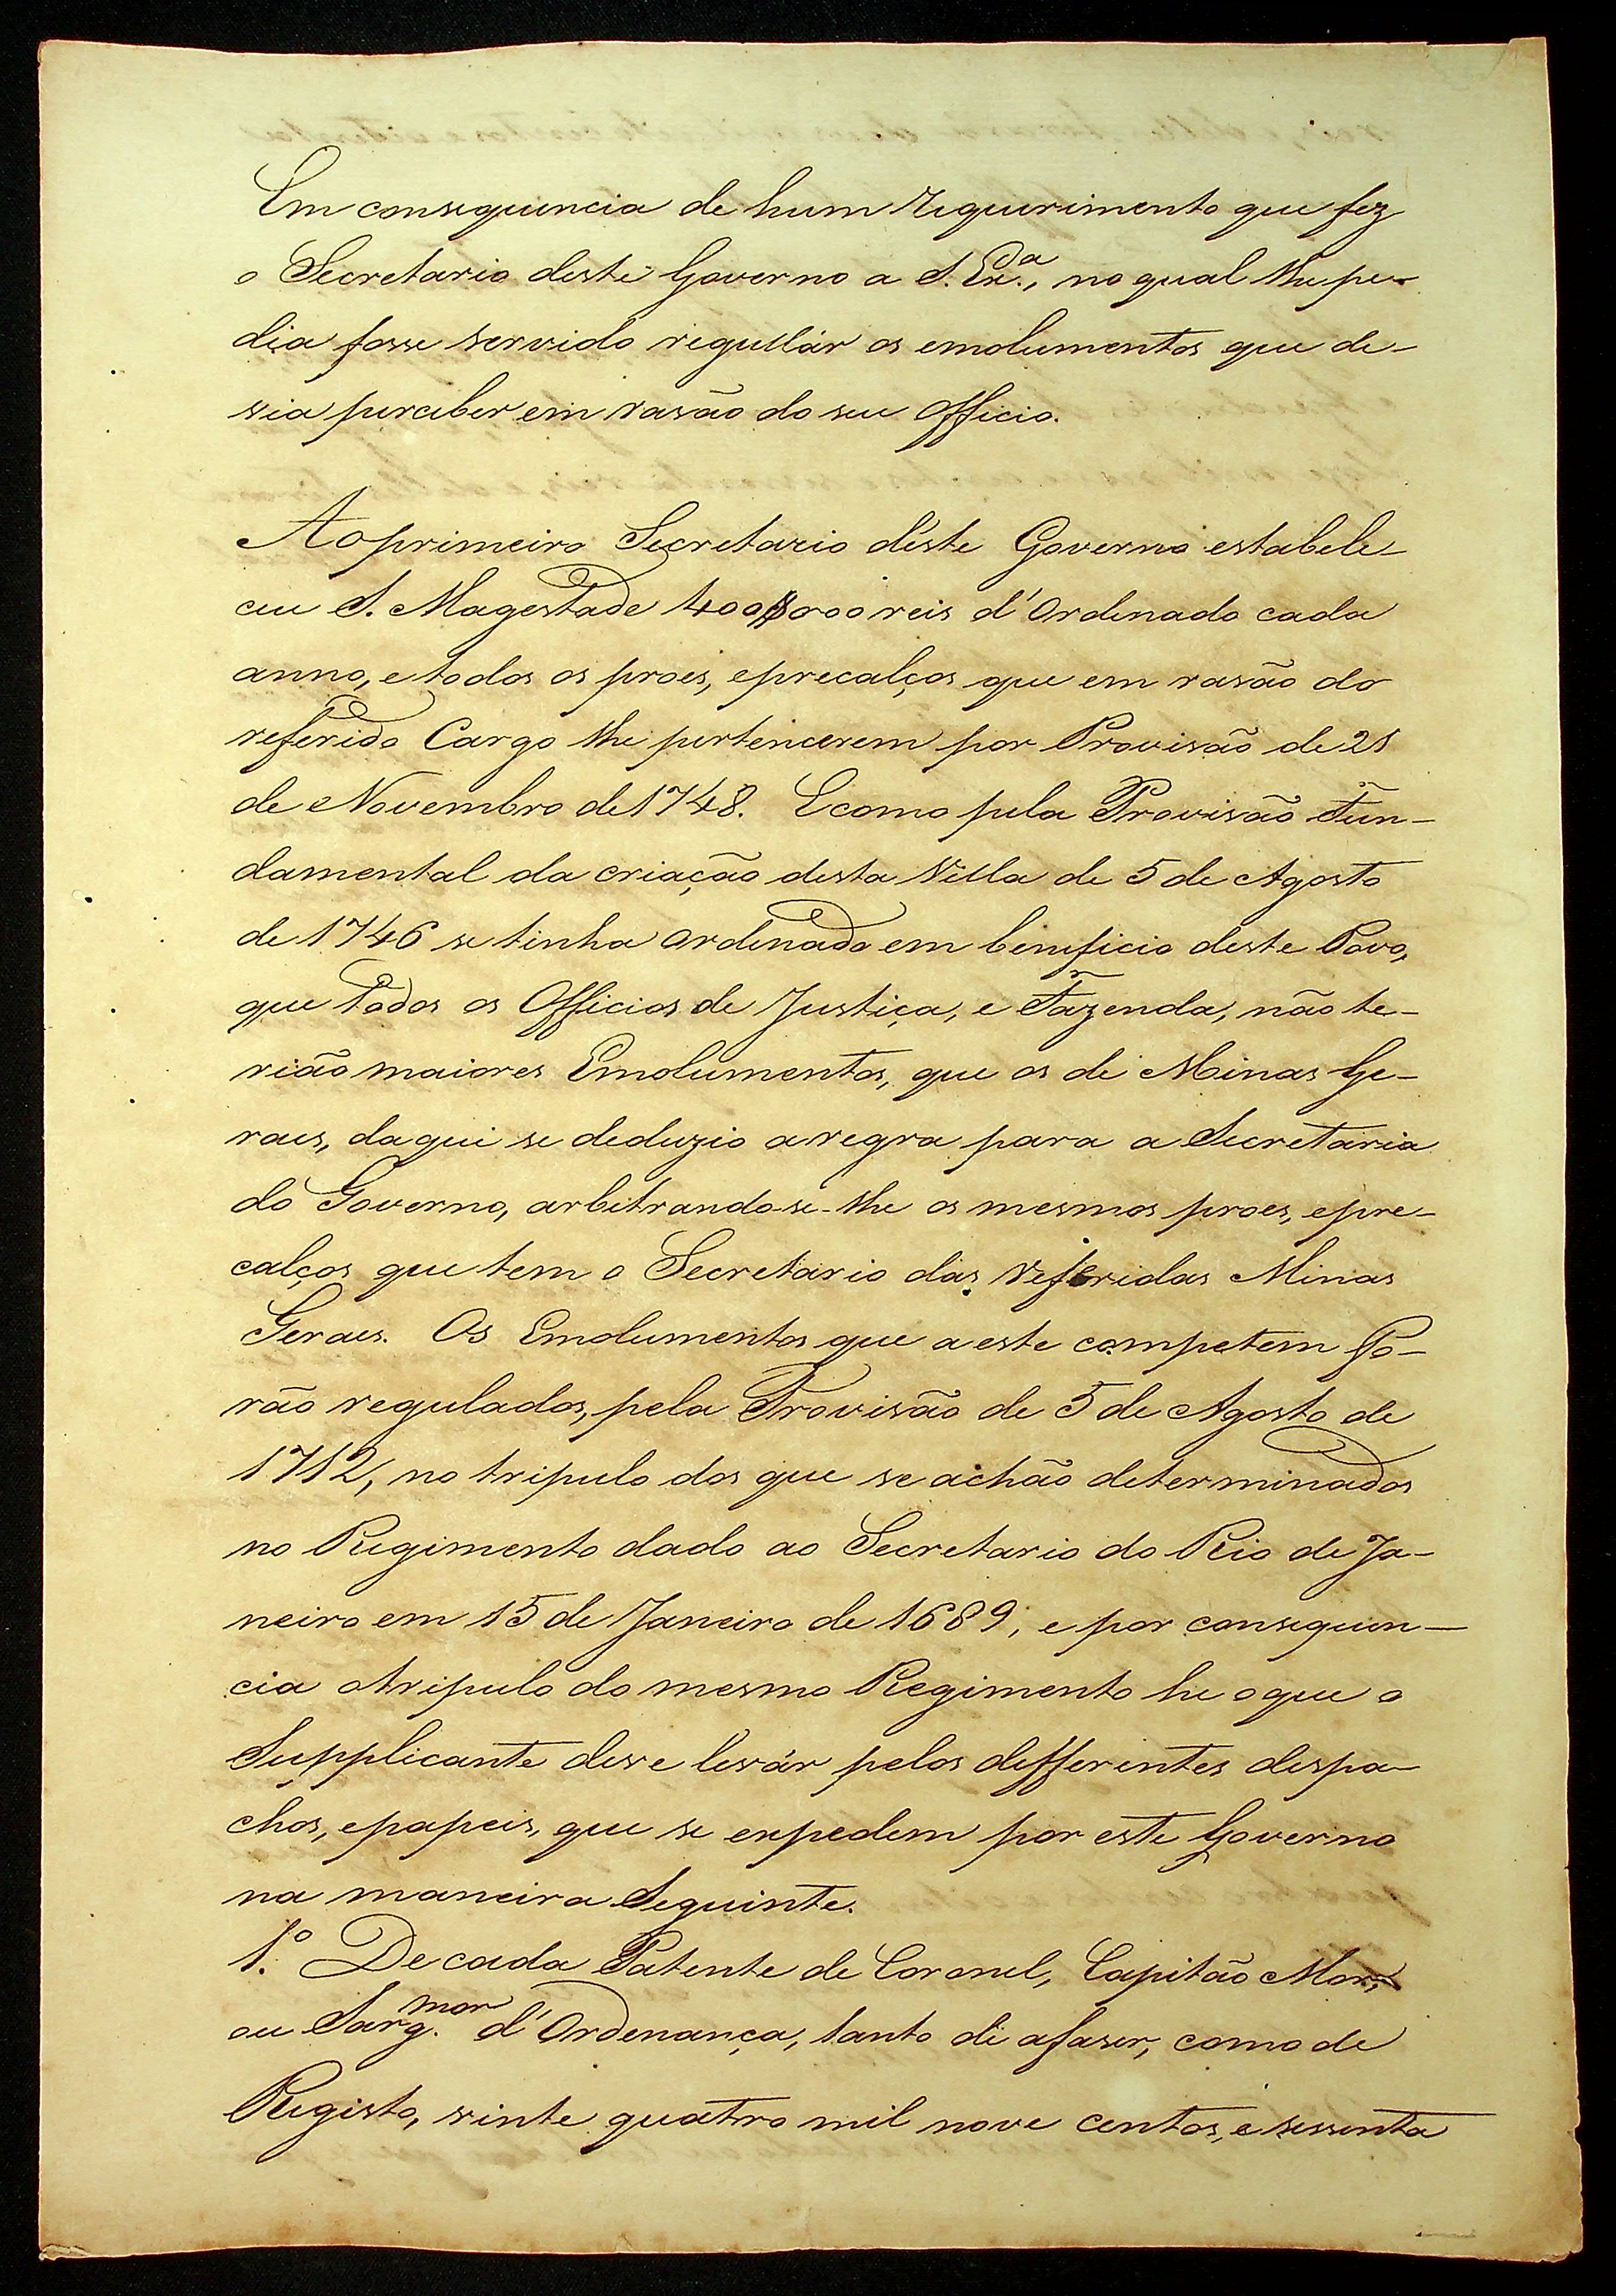 Em consequencia de hum requerimento que fez
o Secretario deste Governo a S. Ex.ª, no qual lhe pe-
dia fosse servido regullár os emolumentos que de-
via perceber em rasão do seu Officio.
Ao primeiro Secretario déste Governo estabele-
ceu S. Magestade 400$000 reis d'Ordenado cada
anno, e todos os proes, e precalços que em rasão do
referido Cargo lhe pertencerem por Provisão de 21
de Novembro de 1748. E como pela Provisão Fun-
damental da criação desta Villa de 5 de Agosto
de 1746 se tinha ordenado em beneficio deste Povo,
que todos os Officios de Justiça, e Fazenda, não te-
rião maiores Emolumentos, que os de Minas Ge-
raes, daqui se deduzio a regra para a Secretaria
do Governo, arbitrando-se-lhe os mesmos proes, e pre-
calços que tem o Secretario das referidas Minas
Geraes. Os Emolumentos que a este competem Fo-
rão regulados, pela Provisão de 5 de Agosto de
1712, no tripulo dos que se achão determinados
no Regimento dado ao Secretario do Rio de Ja-
neiro em 15 de Janeiro de 1689, e por consequen-
cia o tripulo do mesmo Regimento he o que o
Supplicante deve levár pelos differentes despa-
chos, e papeis, que se expedem por este Governo
na maneira Seguinte.
1.º De cada Patente de Coronel, Capitão Mor,
ou Sarg.mor d'Ordenança, tanto di afaser, como de
Registo, vinte quatro mil nove centos, e sessenta